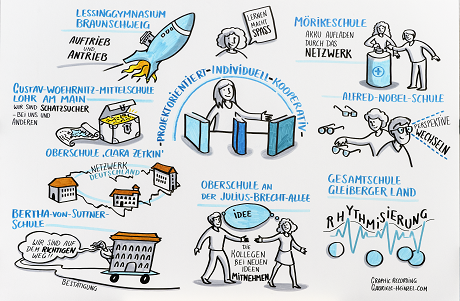 LESSINGGYMNASIUM
BRAUNSCHWEIG
AUFTRIEB UND
ANTRIEB
LERNEN
MACHT
SPASS
MÖRIKESCHULE
AKKU AUFLADEN
DURCH DAS
NETZWERK
GUSTAV-WOEHRNITZ-MITTELSCHULE
LOHR AM MAIN
WIR SIND SCHATZSUCHER
- BEI UNS UND
ANDEREN
-PROJEKTORIENTIERT-INDIVIDUELL-KOOPERATIV-
ALFRED-NOBEL-SCHULE
PERSPEKTIVE
WECHSELN
OBERSCHULE 'CLARA ZETKIN'
NETZWERK
DEUTSCHLAND
OBERSCHULE AN
DER JULIUS-BRECHT-ALLEE
IDEE
DIE
KOLLEGEN
BEI NEUEN
IDEEN
MITNEHMEN
GESAMTSCHULE
GLEIBERGER LAND
RHYTHMISIERUNG
BERTHA-VON-SUTTNER-
SCHULE
WIR SIND AUF
DEM RICHTIGEN
WEG!!
BESTÄTIGUNG
GRAPHIC RECORDING